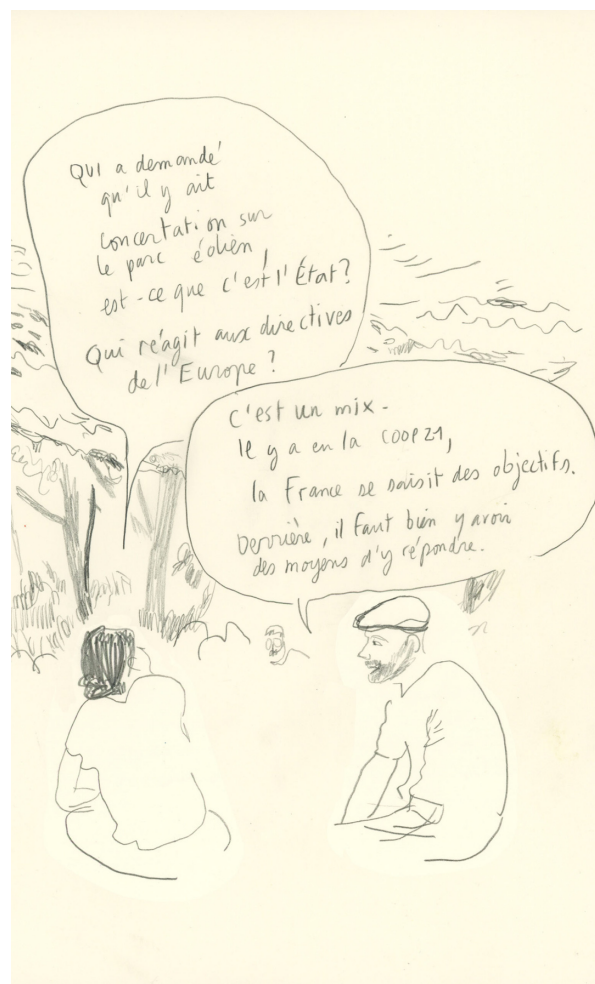 QUI a demandé
qu'il y ait
concertation sur
le parc éolien,
est-ce que c'est l'État?
Qui réagit aux directives
de l'Europe ?
C'est un mix.
Il y a eu la COOP21,
la France se saisit des objectifs.
Derrière, il faut bien y avoir
des moyens d'y répondre.